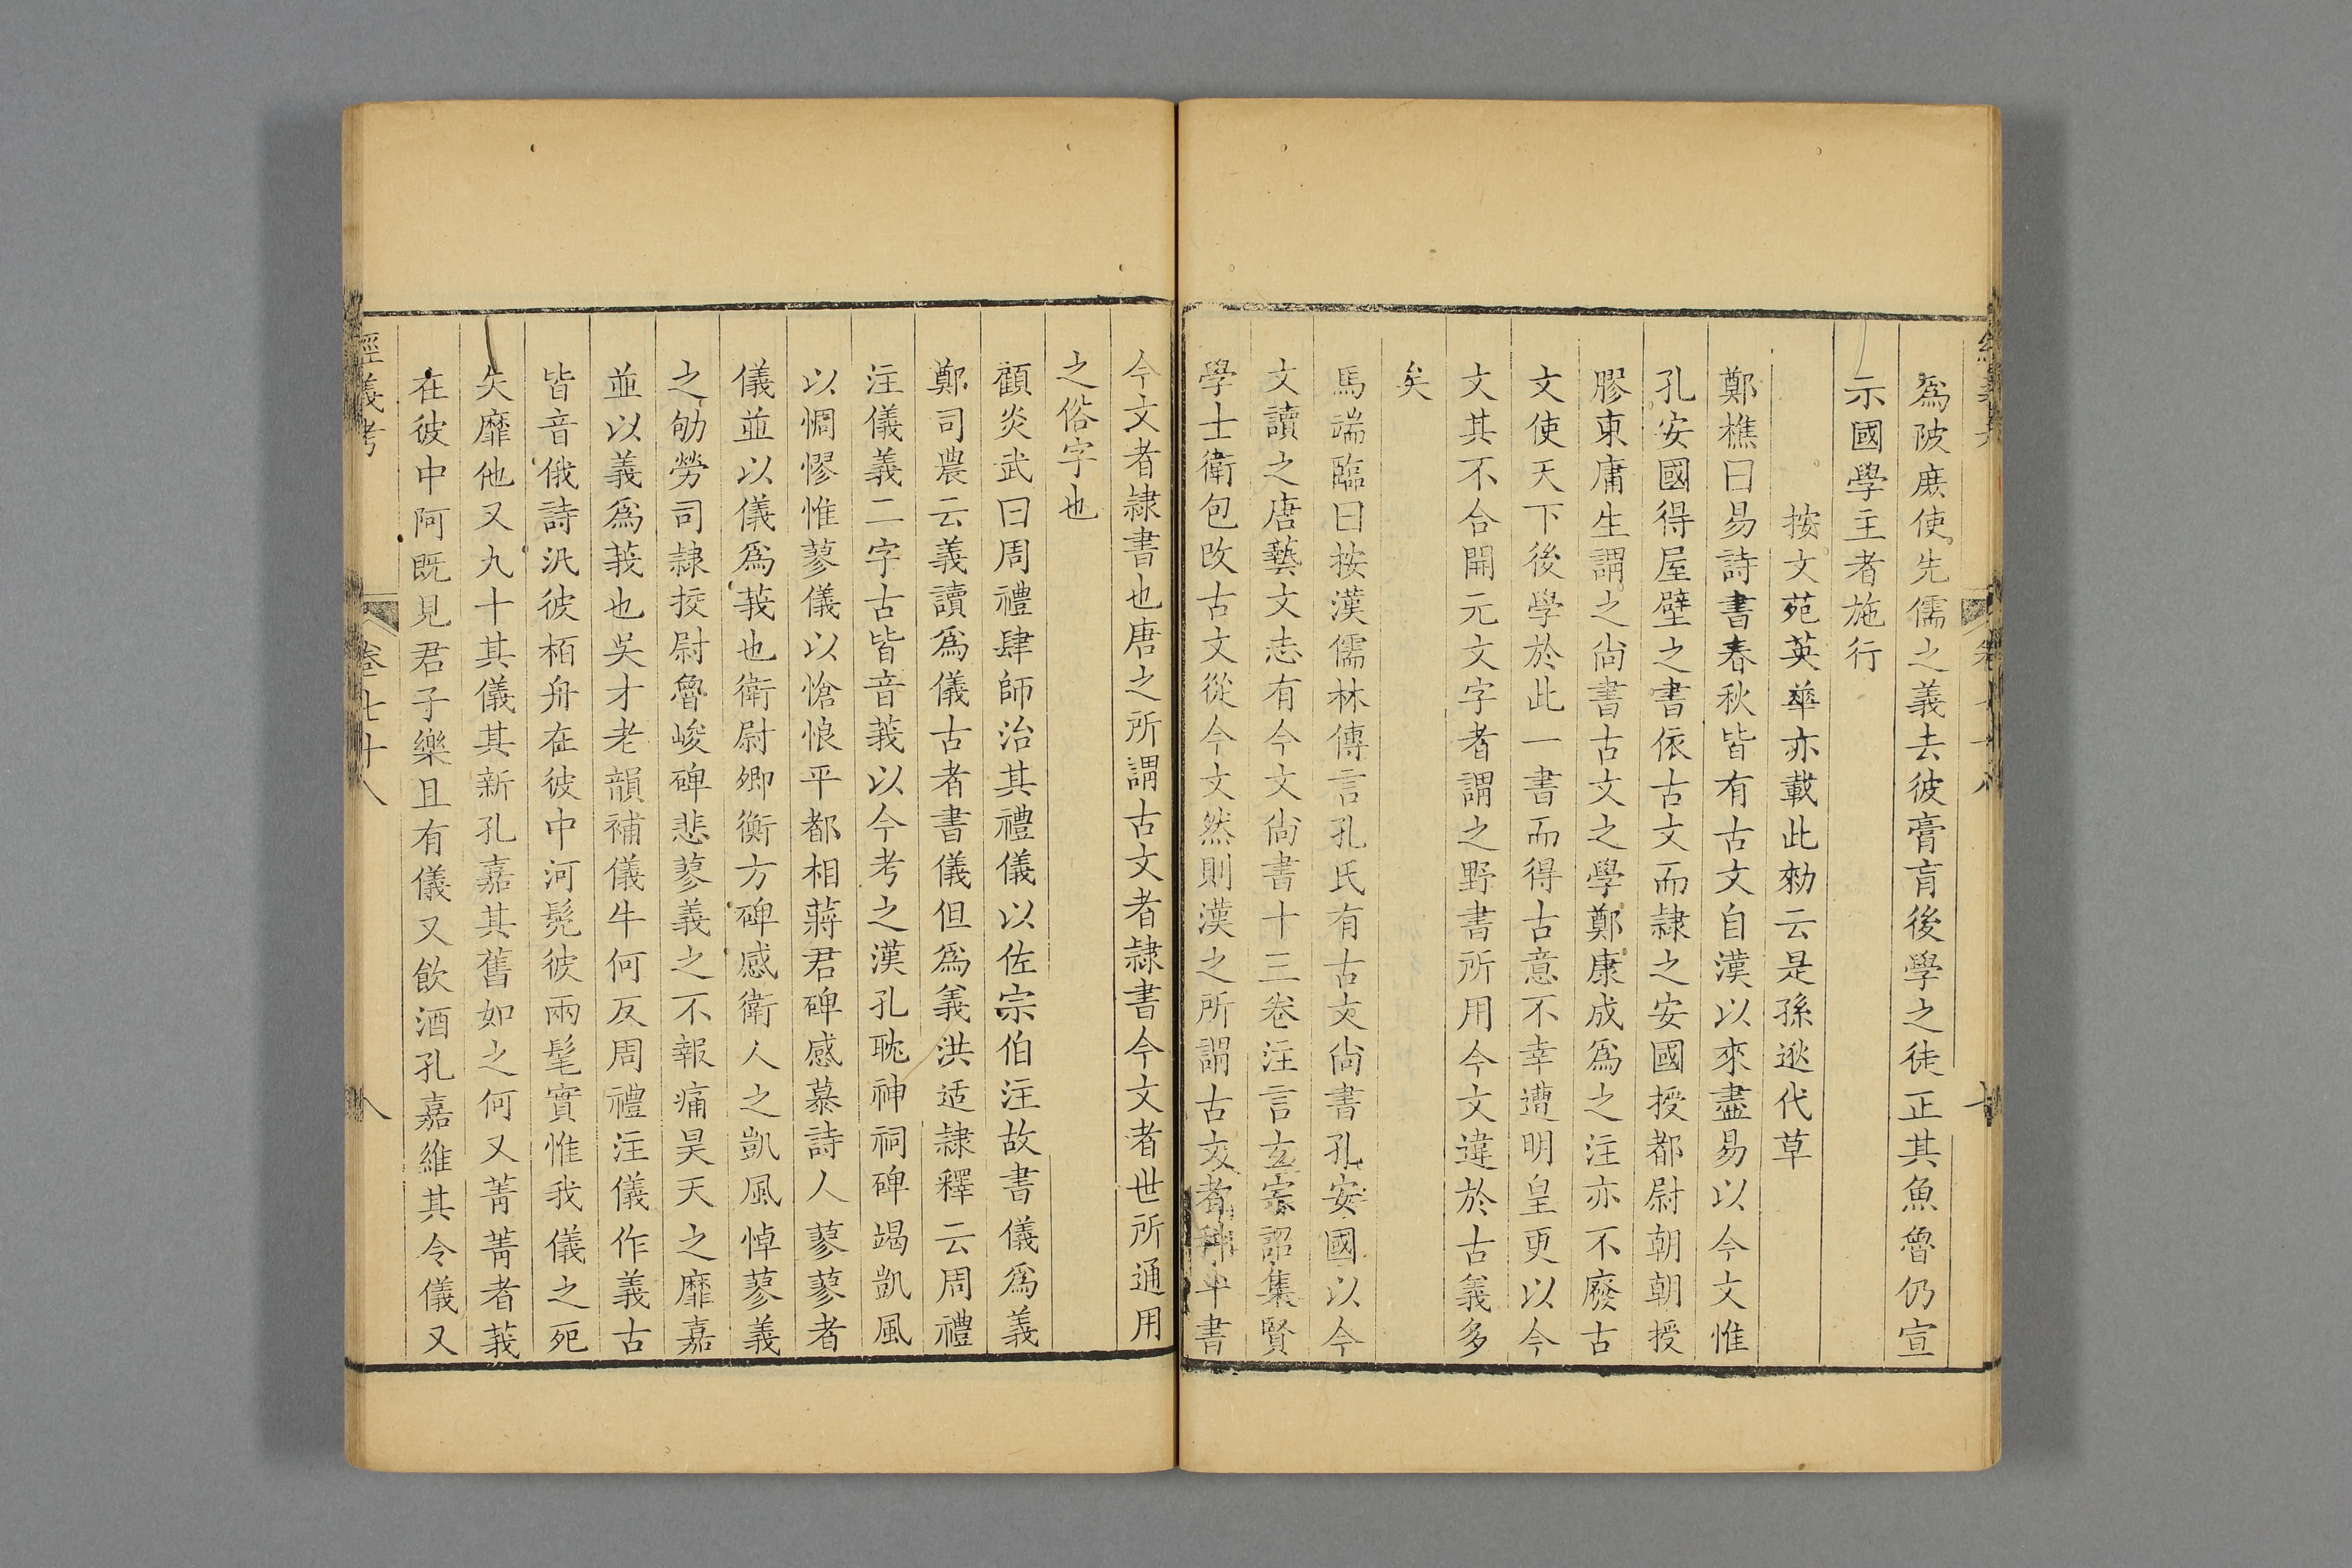 爲陂庶使先儒之義去彼膏肓後學之徒正其魚魯仍宣
示國學主者施行
按文苑英華亦載此勑云是孫逖代草
鄭樵曰易詩書春秋皆有古文自漢以來盡易以今文惟
孔安國得屋壁之書依古文而隷之安國授都尉朝朝授
膠東庸生謂之尙書古文之學鄭康成爲之注亦不廢古
文使天下後學於此一書而得古意不幸遭明皇更以今
文其不合開元文字者謂之野書所用今文違於古義多
矣
馬端臨曰按漢儒林傳言孔氏有古文尙書孔安國以今
文讀之唐藝文志有今文尙書十三卷注言玄宗詔集賢
學士衛包改古文從今文然則漢之所謂古文者科斗書
今文者隷書也唐之所謂古文者隷書今文者世所通用
之俗字也
顧炎武曰周禮肆師治其禮儀以佐宗伯注故書儀爲義
鄭司農云義讀爲儀古者書儀但爲義洪适隷釋云周禮
注儀義二字古皆音莪以今考之漢孔耽神祠碑竭凱風
以惆憀惟蓼儀以愴悢平都相蔣君碑感慕詩人蓼蓼者
儀並以儀爲莪也衛尉卿衡方碑感衛人之凱風悼蓼義
之劬勞司隷挍尉魯峻碑悲蓼義之不報痛昊天之靡嘉
並以義爲莪也吳才老韻補儀牛何反周禮注儀作義古
皆音俄詩汎彼栢舟在彼中河髧彼兩髦實惟我儀之死
矢靡他又九十其儀其新孔嘉其舊如之何又菁菁者莪
在彼中阿既見君子樂且有儀又飲酒孔嘉維其令儀又
經義考
卷七十八
八